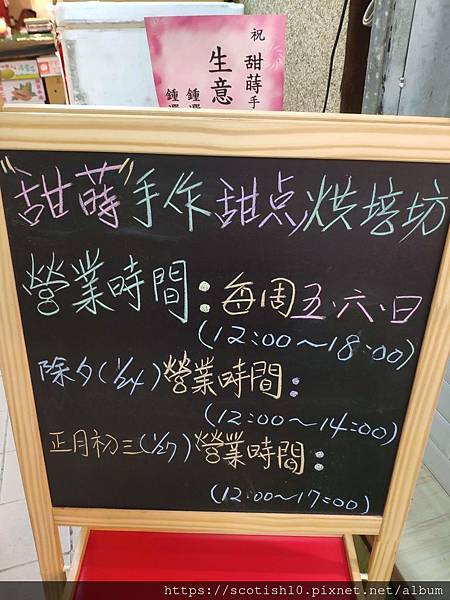 祝
甜蒔手
生意
鍾
鍾
"甜蒔"手作甜点烘培坊
營業時間：每周五、六、日
(12:00～18:00)
除夕(1/24)營業時間：
(12:00～14:00)
正月初三(1/27)營業時間：
(12:00～17:00)
https://scotish10.pixnet.net/album